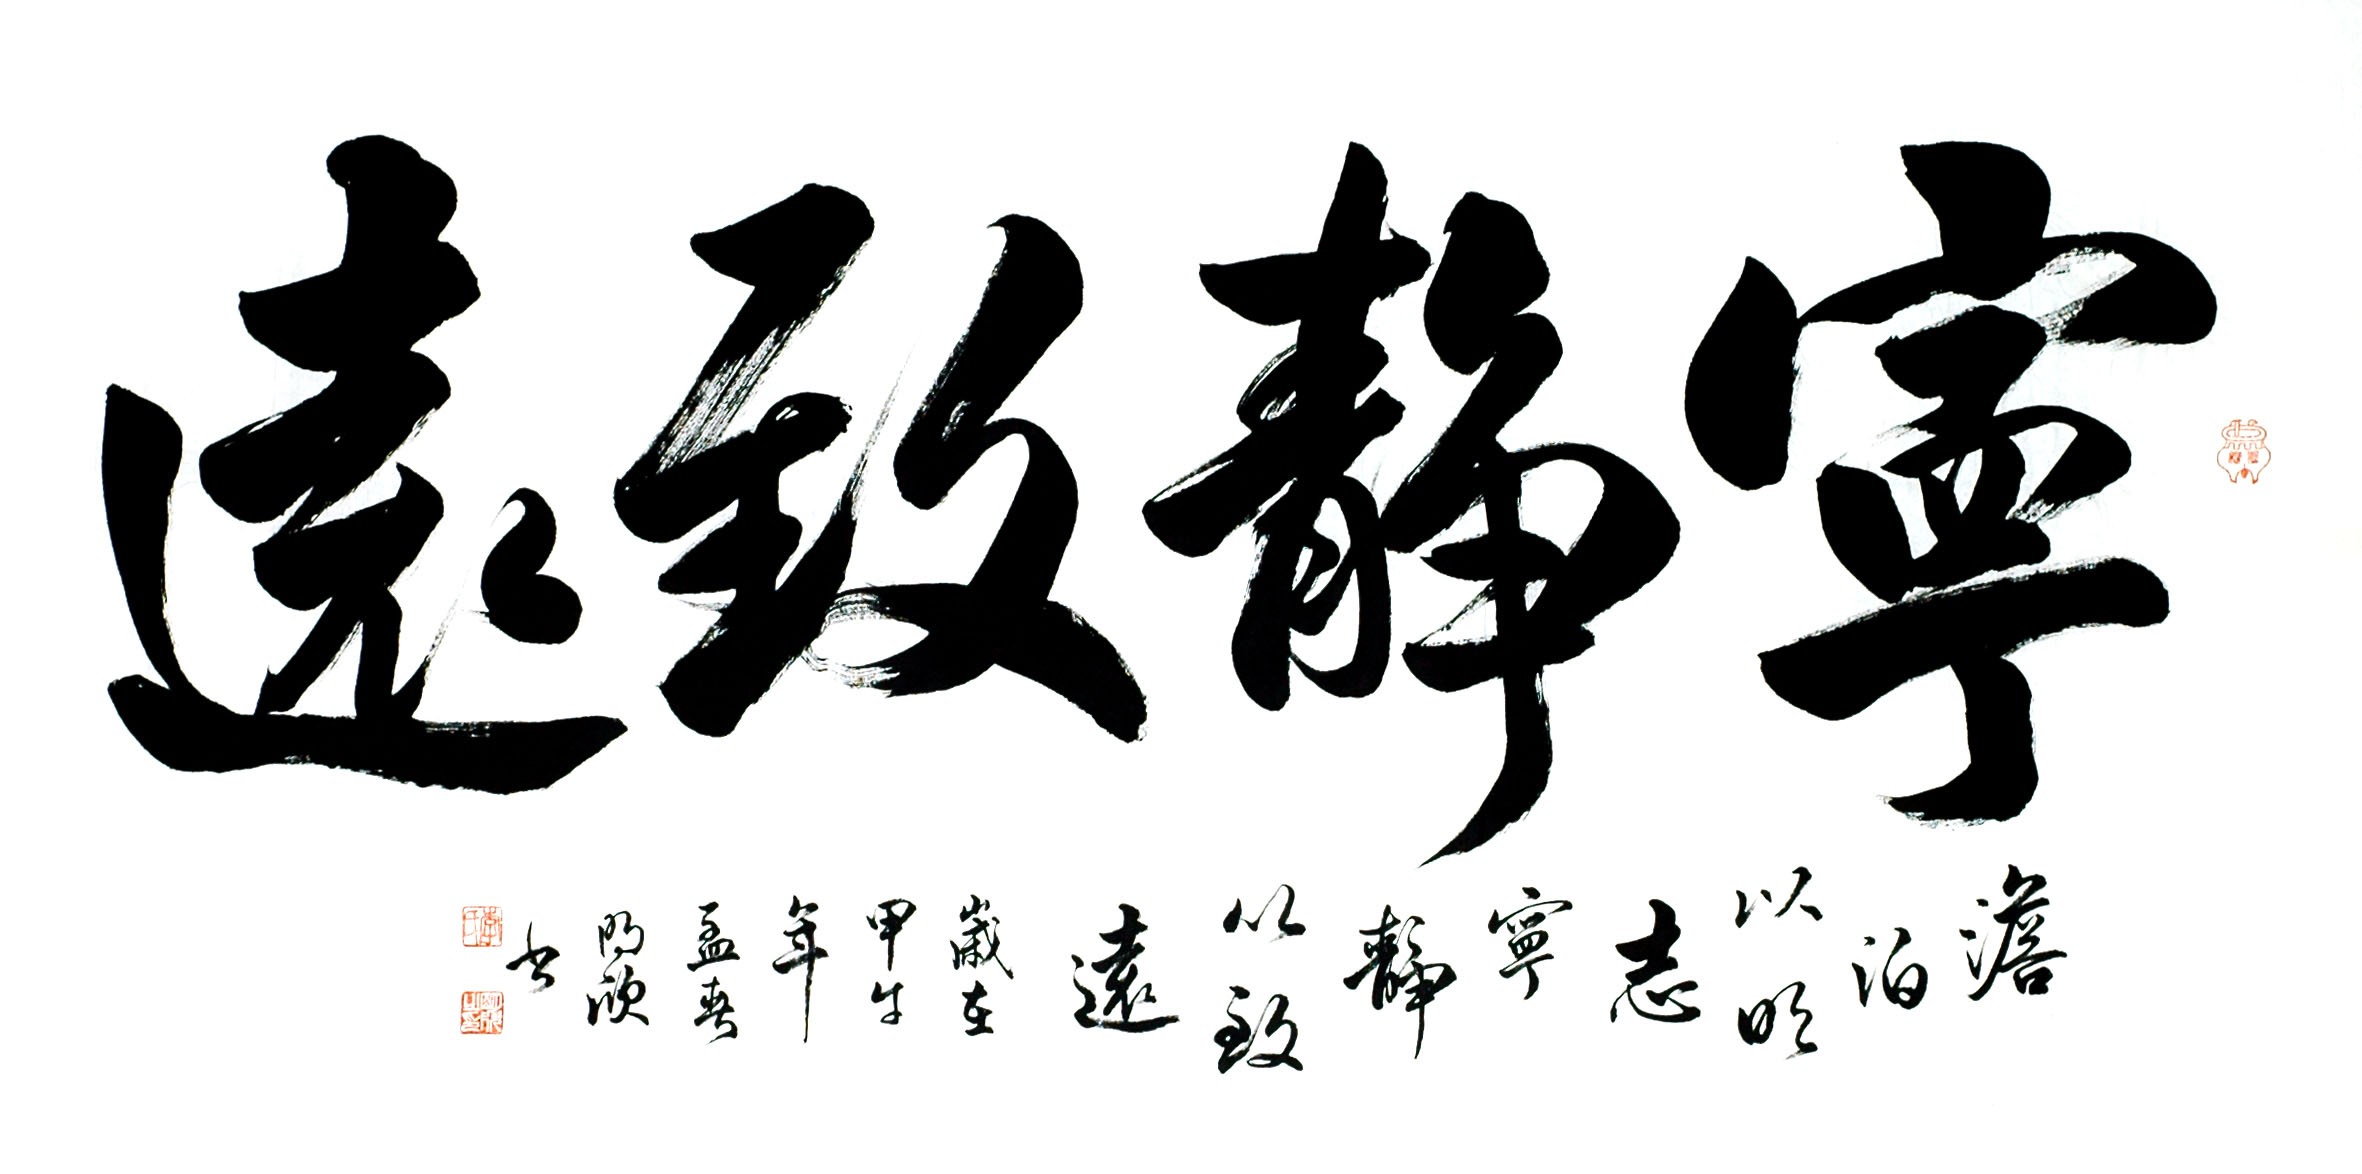 寧靜致遠
澹泊以明志寧靜以致遠
歲在甲午年孟春明欣书